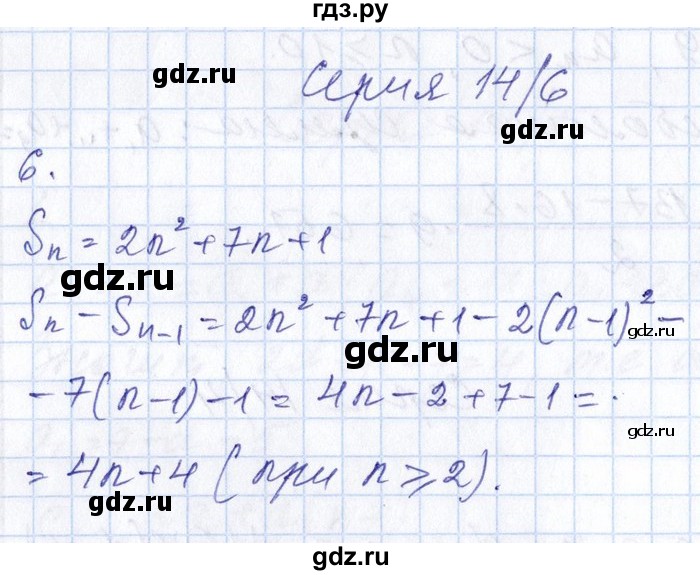 гдз.ру
Серия 14/6
gdz.ru
gdz.ru
6.
Sₙ = 2n² + 7n + 1
gdz.ru
Sₙ - Sₙ₋₁ = 2n² + 7n + 1 - 2(n-1)² -
gdz.ru
gdz.ru
- 7(n-1) - 1 = 4n - 2 + 7 - 1 =
gdz.ru
= 4n + 4 (при n ⩾ 2).
gdz.ru
gdz.ru
gdz.ru